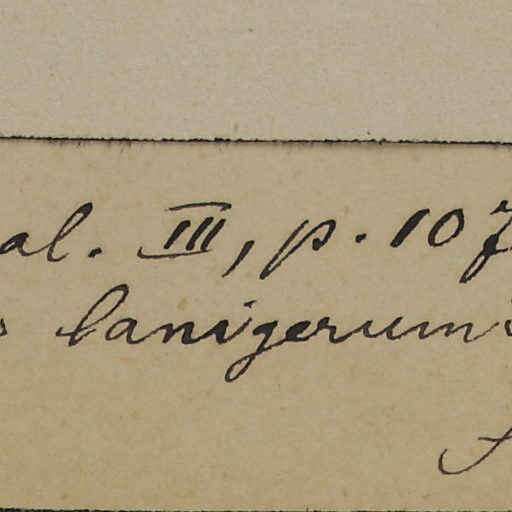 al. III, p. 107
lanigerum